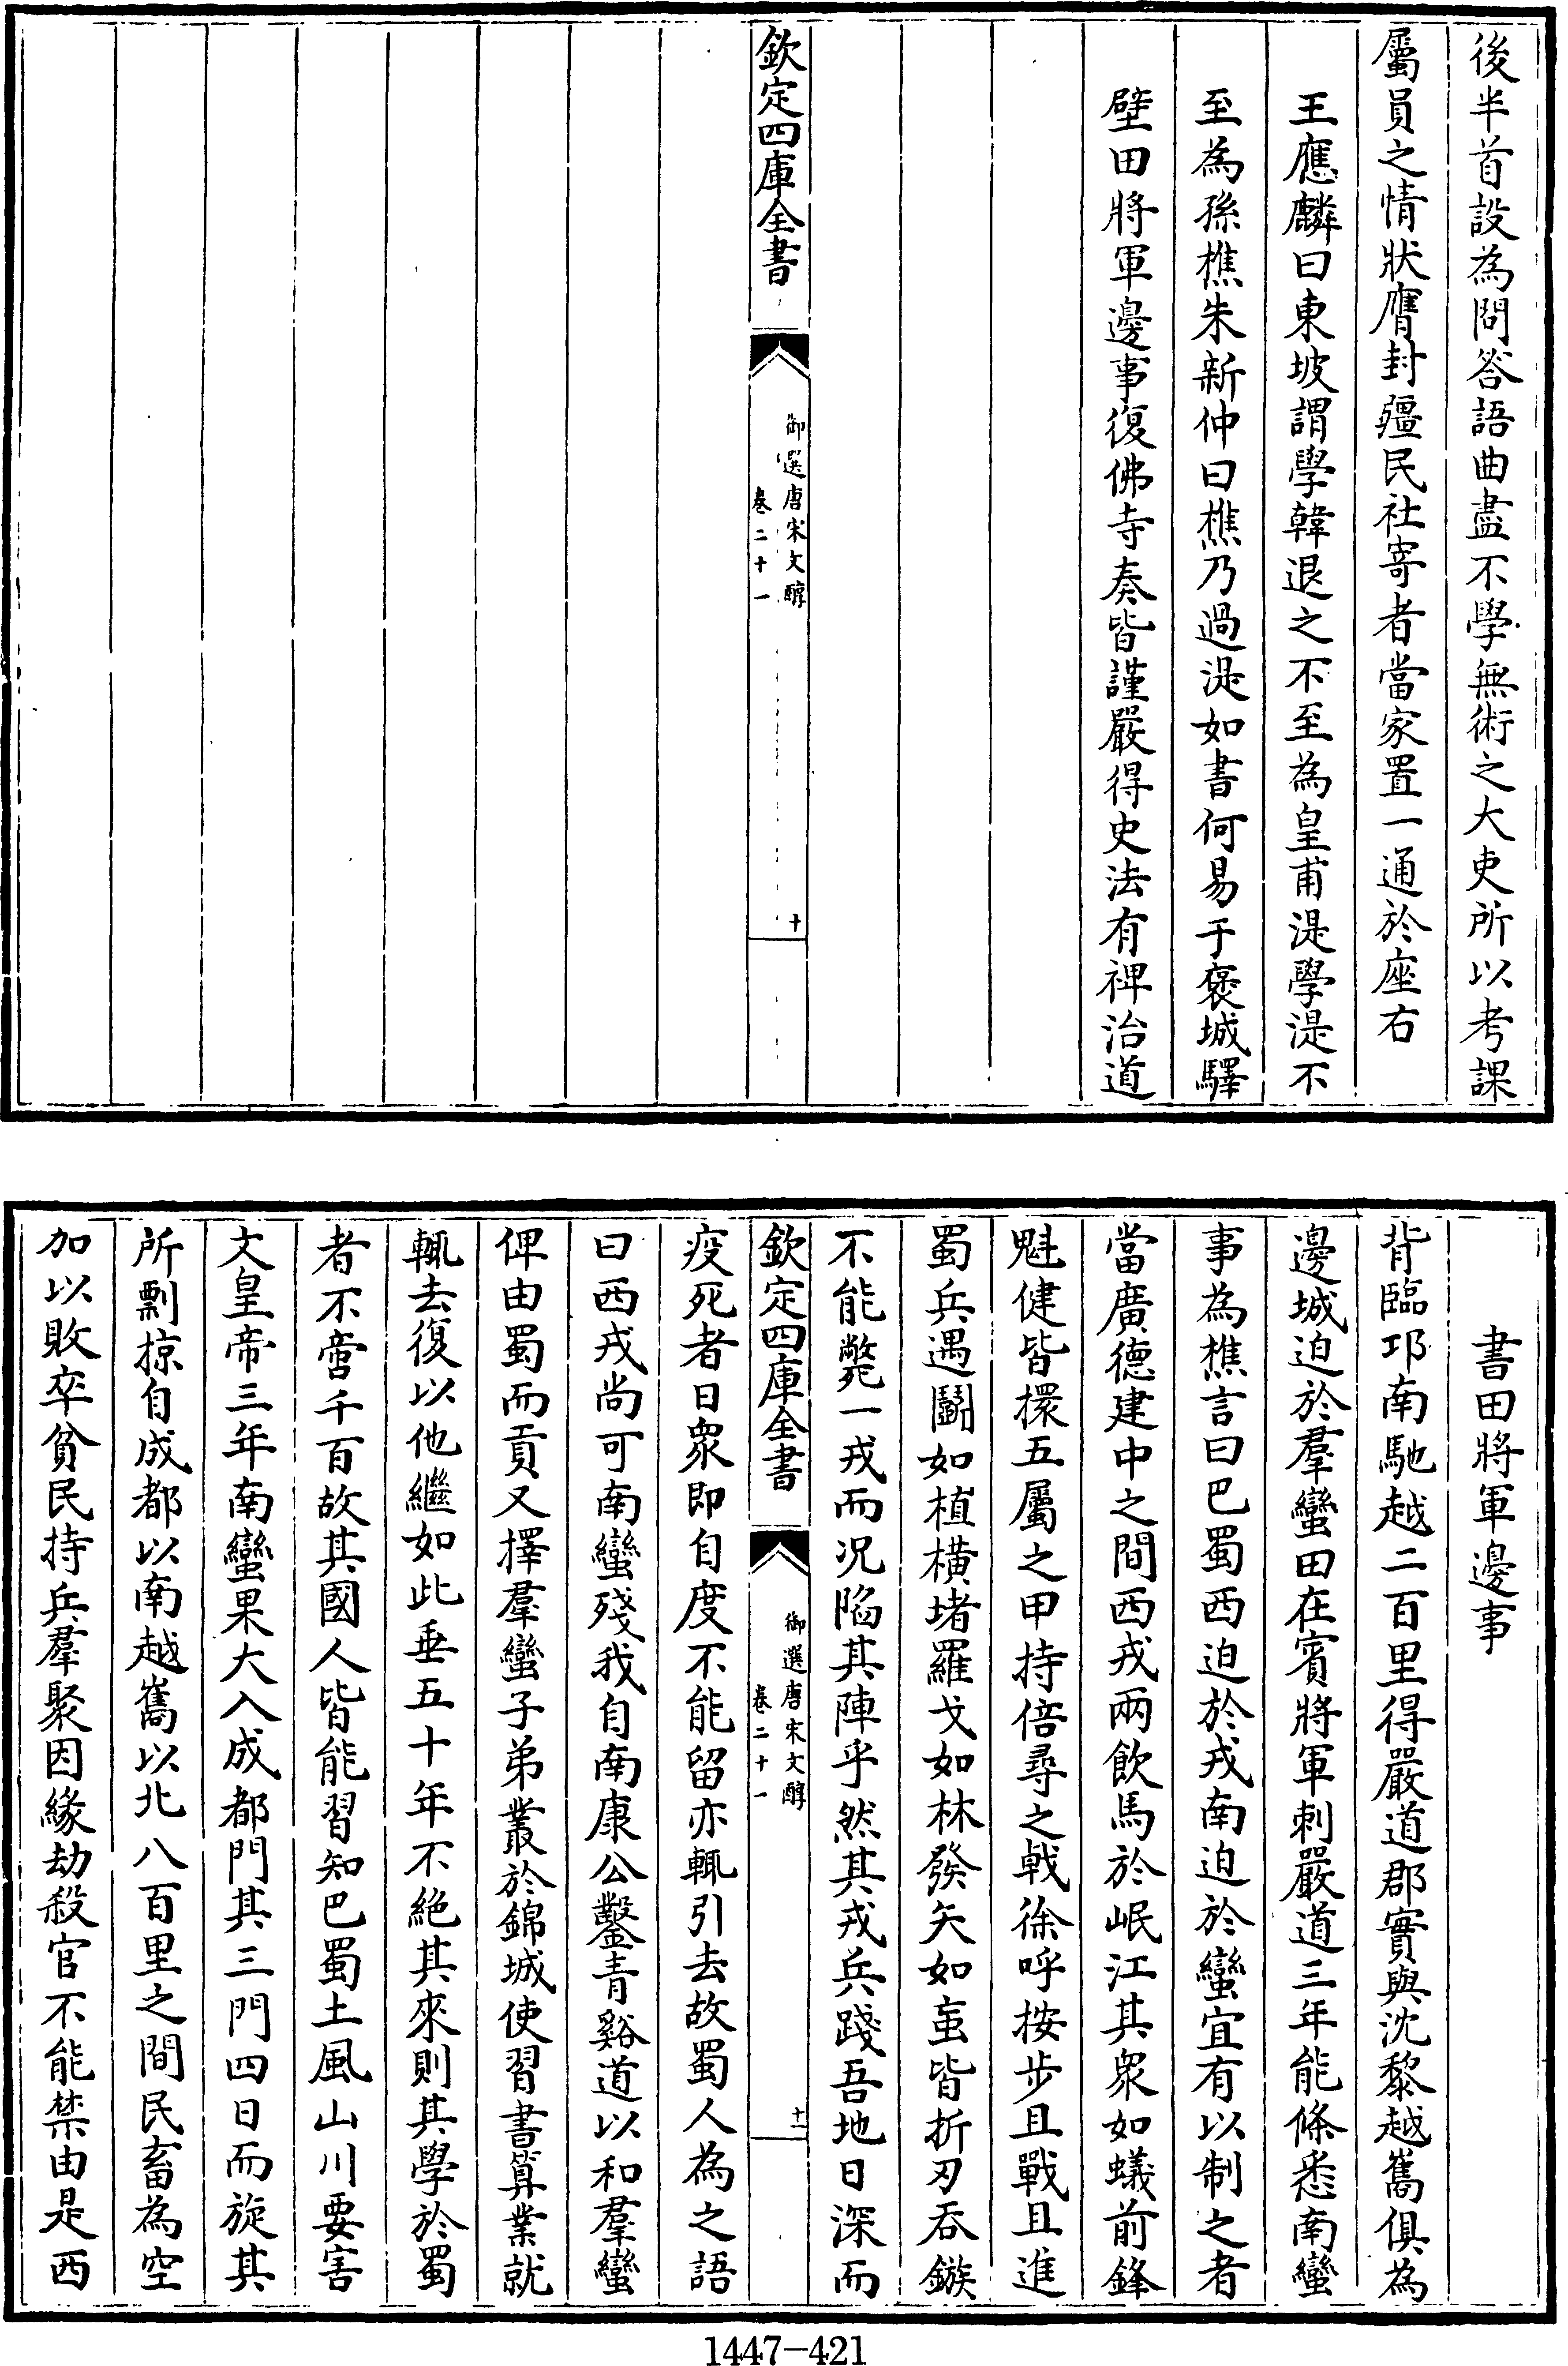 後半首設為問答語曲盡不學無術之大吏所以考課
屬員之情狀膺封疆民社寄者當家置一通於座右
王應麟曰東坡謂學韓退之不至為皇甫湜學湜不
至為孫樵朱新仲曰樵乃過湜如書何易于褒城驛
壁田將軍邊事復佛寺奏皆謹嚴得史法有裨治道
欽定四庫全書
御選唐宋文醇
卷二十一
十
書田將軍邊事
背臨邛南馳越二百里得嚴道郡實與沈黎越巂俱為
邊城迫於羣蠻田在賓將軍刺嚴道三年能條悉南蠻
事為樵言曰巴蜀西迫於戎南迫於蠻宜有以制之者
當廣德建中之間西戎兩飲馬於岷江其衆如蟻前鋒
魁健皆擐五屬之甲持倍尋之戟徐呼按步且戰且進
蜀兵遇鬭如植橫堵羅戈如林發矢如蝱皆折刃吞鏃
不能斃一戎而況陷其陣乎然其戎兵踐吾地日深而
欽定四庫全書
御選唐宋文醇
卷二十一
十一
疫死者日衆即自度不能留亦輒引去故蜀人為之語
曰西戎尚可南蠻殘我自南康公鑿青谿道以和羣蠻
俾由蜀而貢又擇羣蠻子弟叢於錦城使習書算業就
輒去復以他繼如此垂五十年不絕其來則其學於蜀
者不啻千百故其國人皆能習知巴蜀土風山川要害
文皇帝三年南蠻果大入成都門其三門四日而旋其
所剽掠自成都以南越巂以北八百里之間民畜為空
加以敗卒貧民持兵羣聚因緣劫殺官不能禁由是西
1447-421